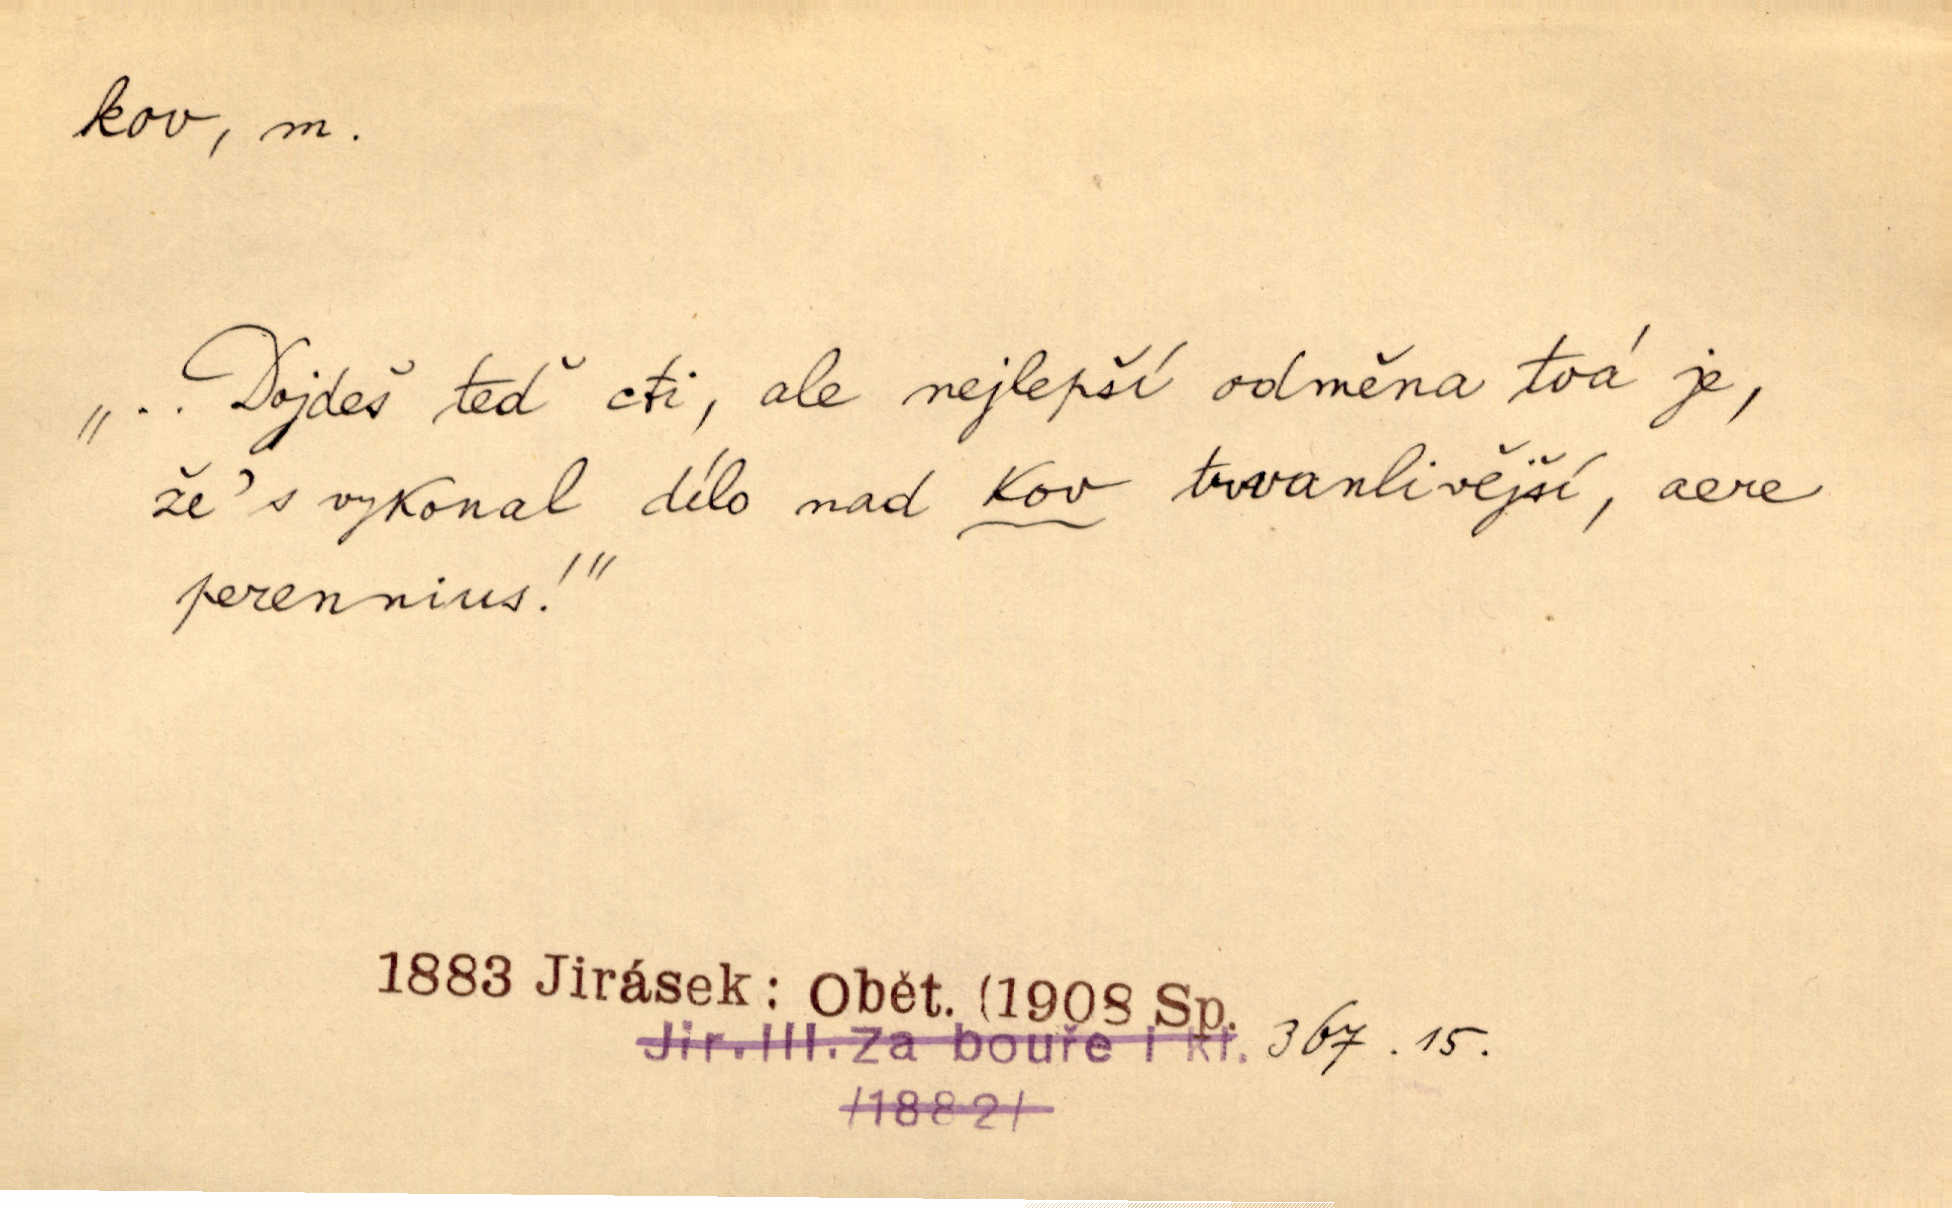 kov, m.
„.. Dojdeš teď cti, ale nejlepší odměna tvá je,
že's vykonal dílo nad kov trvanlivější, aere
perennius!"
1883 Jirásek: Obět. (1908 Sp.
Jir.III.Za bouře i kl. 367.15.
/1882/